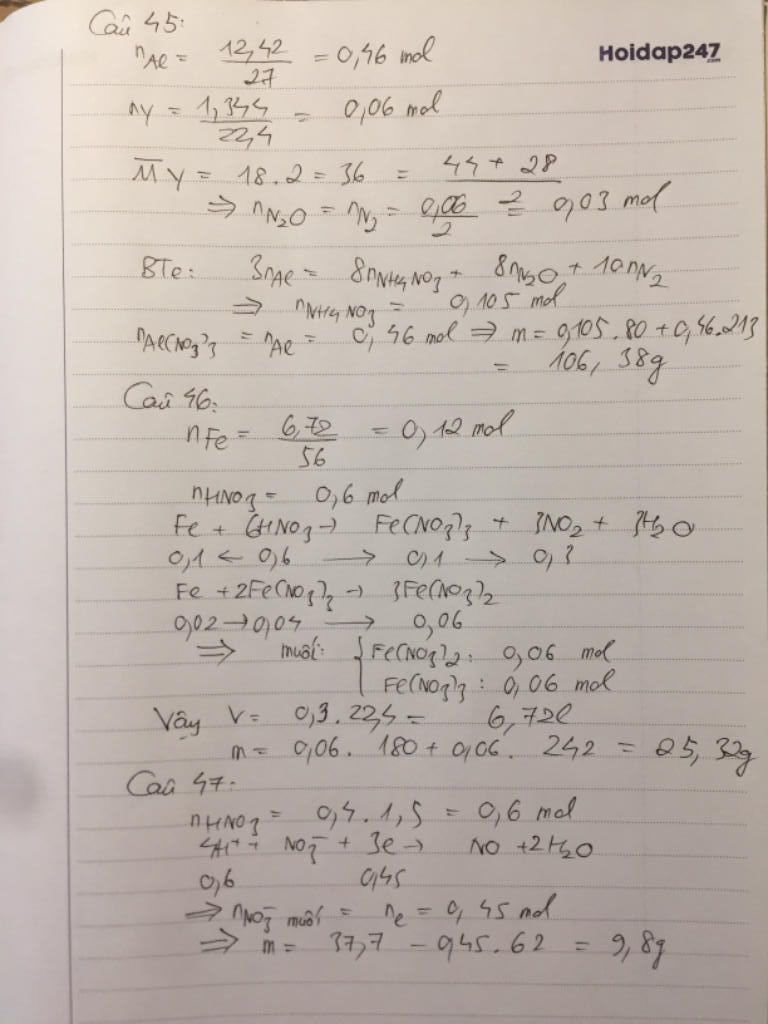 Câu 45:
nAl = 12,42/27 = 0,46 mol
Hoidap247.com
nY = 1,344/22,4 = 0,06 mol
M̅Y = 18.2 = 36 = (44 + 28)/2
⇒ nN2O = nN2 = 0,06/2 = 0,03 mol
BTe: 3nAl = 8nNH4NO3 + 8nN2O + 10nN2
⇒ nNH4NO3 = 0,105 mol
nAl(NO3)3 = nAl = 0,46 mol ⇒ m = 0,105.80 + 0,46.213
= 106,38g
Câu 46:
nFe = 6,72/56 = 0,12 mol
nHNO3 = 0,6 mol
Fe + 6HNO3 → Fe(NO3)3 + 3NO2 + 3H2O
0,1 ← 0,6 → 0,1 → 0,3
Fe + 2Fe(NO3)3 → 3Fe(NO3)2
0,02 → 0,04 → 0,06
⇒ muối: { Fe(NO3)2 : 0,06 mol
Fe(NO3)3 : 0,06 mol
Vậy V = 0,3.22,4 = 6,72l
m = 0,06. 180 + 0,06. 242 = 25,32g
Câu 47:
nHNO3 = 0,4.1,5 = 0,6 mol
4H+ + NO3- + 3e → NO + 2H2O
0,6 0,45
⇒ nNO3- muối = ne = 0,45 mol
⇒ m = 37,7 - 0,45.62 = 9,8g